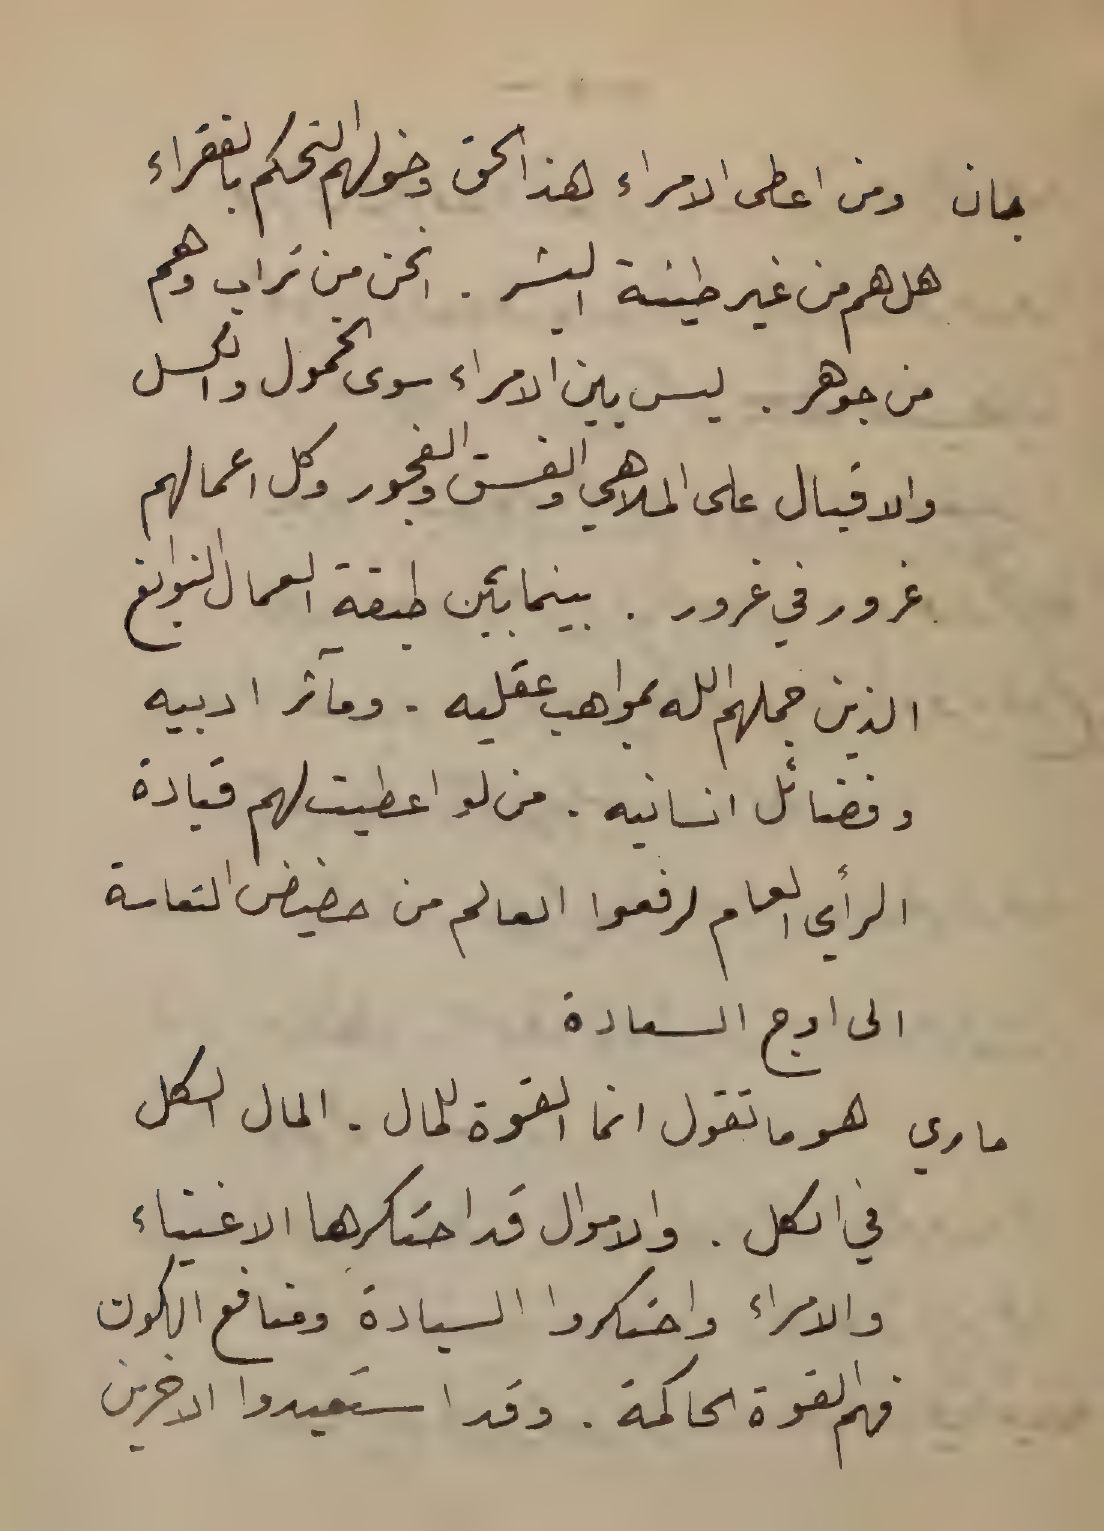 جان ومن اعطى الامراء هذا الحق وخولهم التحكم بالفقراء
هل هم من غير طينة البشر . انحن من تراب وهم
من جوهر . ليس بين الامراء سوى الخمول والكسل
والاقبال على الملاهي والفسق والفجور وكل اعمالهم
غرور في غرور . بينما بين طبقة العمال النوابغ
الذين جملهم الله بمواهب عقليه . ومآثر ادبيه
وفضائل انسانيه . من لو اعطيت لهم قيادة
الرأي العام لرفعوا العالم من حضيض التعاسة
الى اوج السعادة
ماري هو ما تقول انما القوة للمال . المال الكل
في الكل . والاموال قد احتكرها الاغنياء
والامراء واحتكروا السيادة ومنافع الكون
فهم القوة الحاكمة . وقد استعبدوا الاخرين